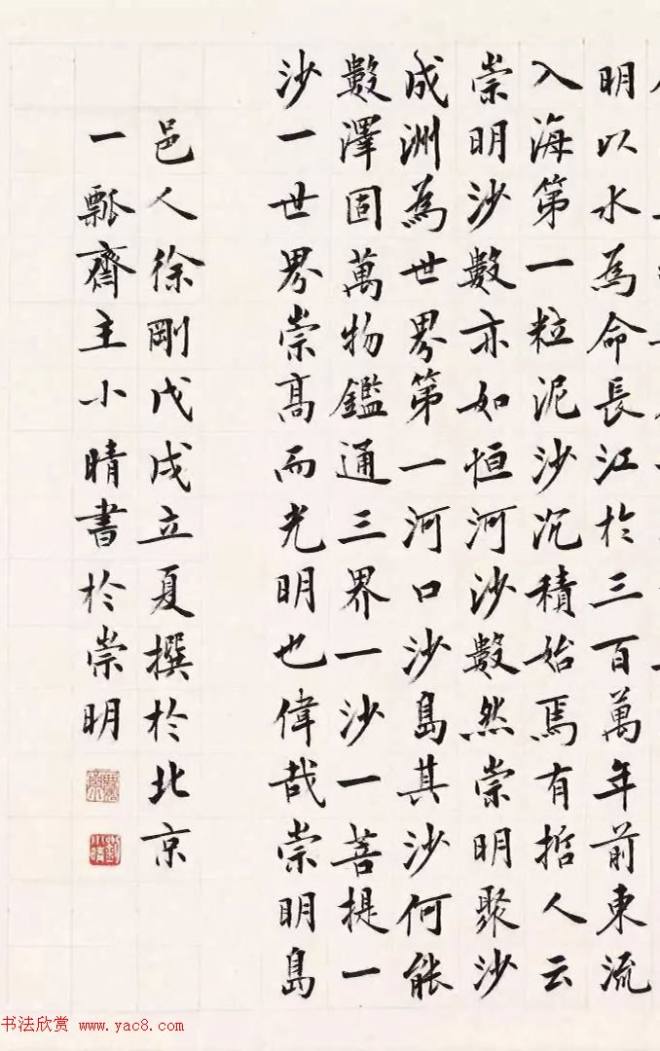 明以水為命長江於三百萬年前東流
入海第一粒泥沙沉積始焉有哲人云
崇明沙數亦如恒河沙數然崇明聚沙
成洲為世界第一河口沙島其沙何能
數澤固萬物鑑通三界一沙一菩提一
沙一世界崇高而光明也偉哉崇明島
邑人徐剛戊戌立夏撰於北京
一瓢齋主小晴書於崇明
书法欣赏 www.yac8.com